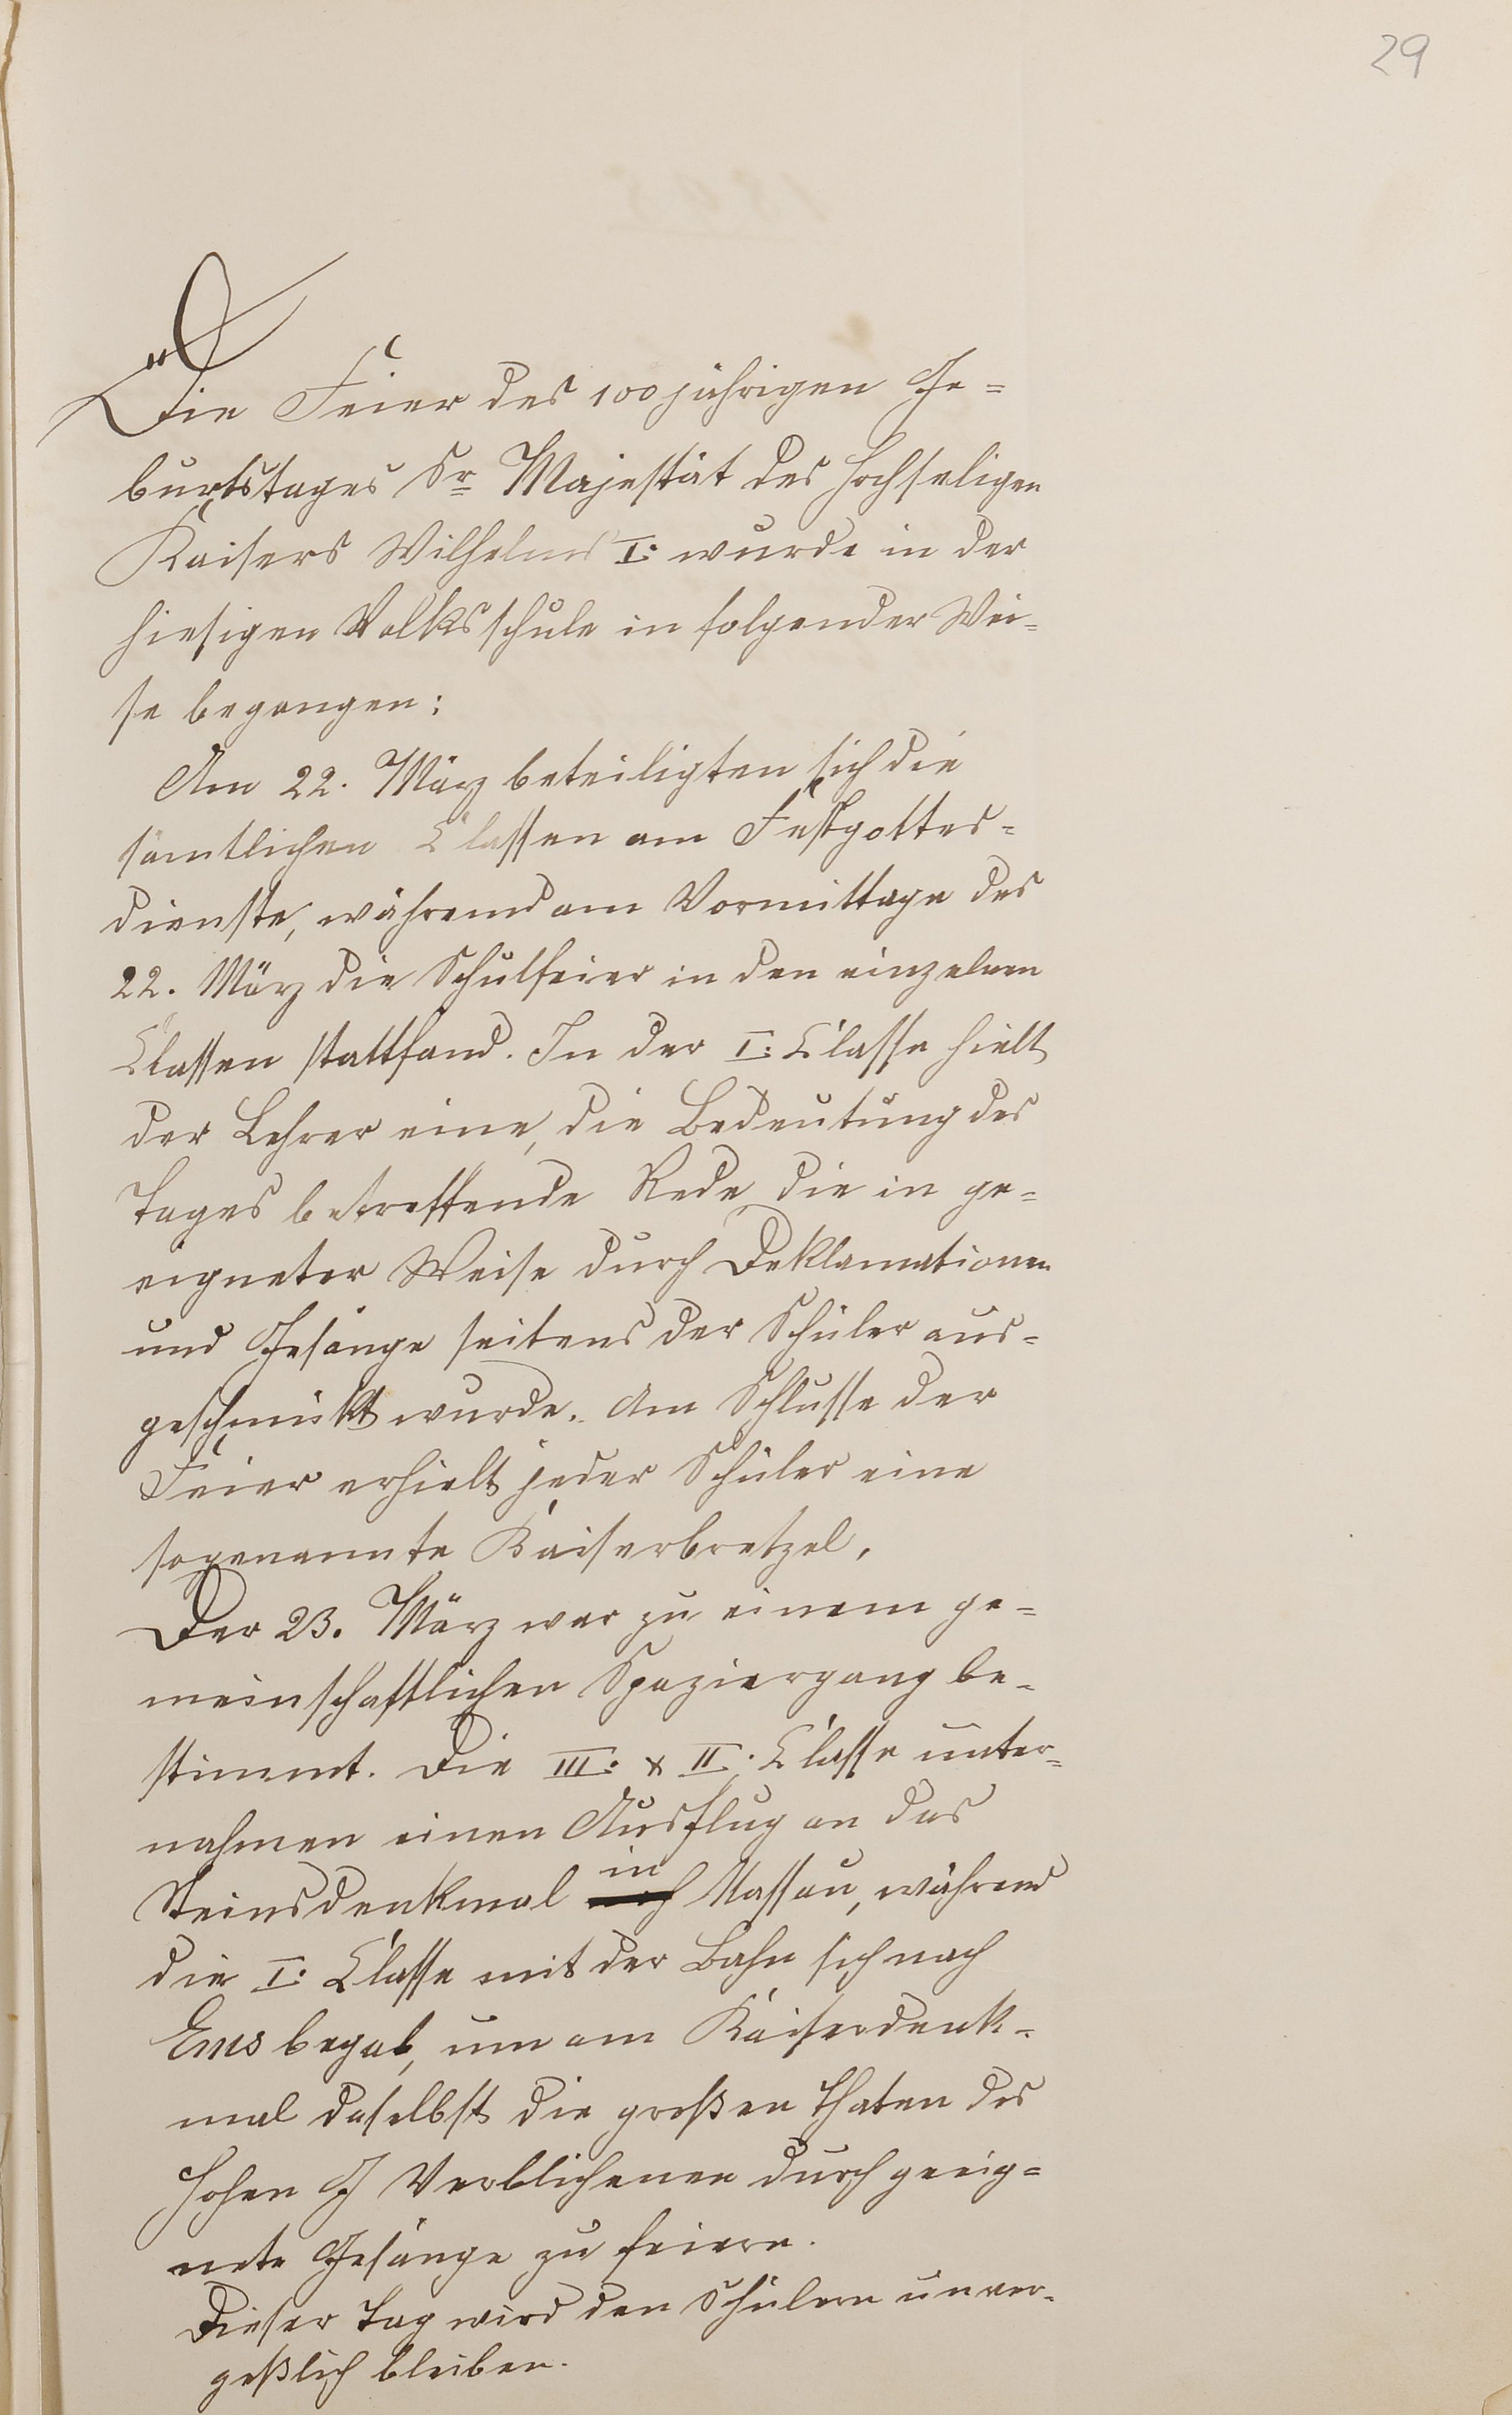 29
Die Feier des 100jährigen Ge=
burtstages Sr Majestät des Hochseligen
Kaisers Wilhelms I: wurde in der
hiesigen Volksschule in folgender Wei=
se begangen:
Am 22. März beteiligten sich die
sämtlichen Classen am Festgottes=
dienste, während am Vormittage des
22. März die Schulfeier in den einzelnen
Classen stattfand. In der I: Classe hielt
der Lehrer eine, die Bedeutung des
Tages betreffende Rede, die in ge=
eigneter Weise durch Deklamationen
und Gesänge seitens der Schüler aus=
geschmückt wurde. Am Schlusse der
Feier erhielt jeder Schüler eine
sogenannte Kaiserbretzel.
Der 23. März war zu einem ge=
meinschaftlichen Spaziergang be=
stimmt. Die III: & II: Classe unter=
nahmen einen Ausflug an das
Steinsdenkmal in Nassau, während
die I: Classe mit der Bahn sich nach
Ems begab, um am Kaiserdenk=
mal daselbst die großen Thaten des
Hohen G Verblichenen durch geeig=
nete Gesänge zu feiern.
Dieser Tag wird den Schülern unver=
geßlich bleiben.